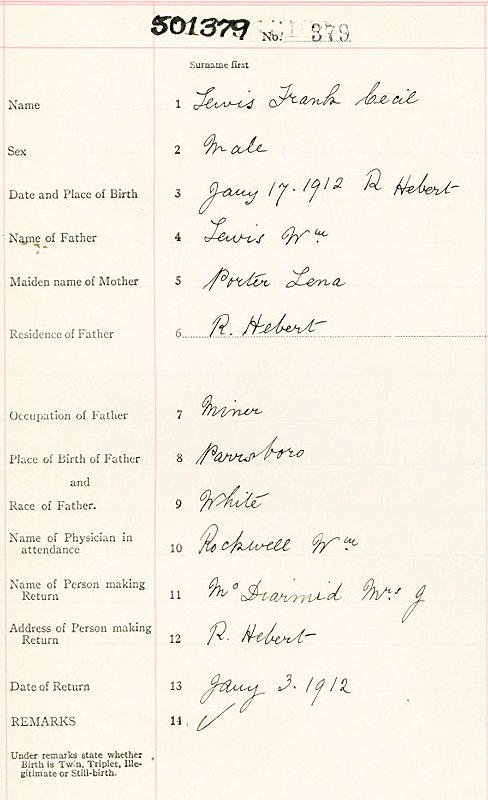 501379 No. 379
Surname first
Name 1 Lewis Frank Cecil
Sex 2 Male
Date and Place of Birth 3 Jany 17. 1912 R Hebert
Name of Father 4 Lewis Wm
Maiden name of Mother 5 Porter Lena
Residence of Father 6 R. Hebert
Occupation of Father 7 Miner
Place of Birth of Father 8 Parrsboro
and
Race of Father. 9 White
Name of Physician in
attendance 10 Rockwell Wm
Name of Person making
Return 11 Mc Diarmid Mrs J
Address of Person making
Return 12 R. Hebert
Date of Return 13 Jany 3. 1912
REMARKS 14 ✓
Under remarks state whether
Birth is Twin, Triplet, Ille-
gitimate or Still-birth.